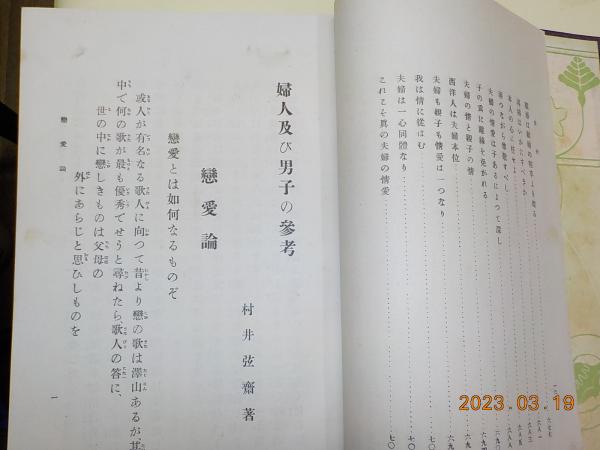 夫婦の情愛は子あるによつて深し
子の爲に離緣を免かれる
夫婦の情と親子の情
西洋人は夫婦本位
夫婦も親子も情愛は一つなり
我は情に從はむ
夫婦は一心同體なり
これこそ眞の夫婦の情愛
婦人及び男子の參考
戀愛論
村井弦齋著
戀愛とは如何なるものぞ
或人が有名なる歌人に向つて昔より戀の歌は澤山あるが其
中で何の歌が最も優秀でせうと尋ねたら、歌人の答に、
世の中に戀しきものは父母の
外にあらじと思ひしものを
戀愛論
一
2023.03.19